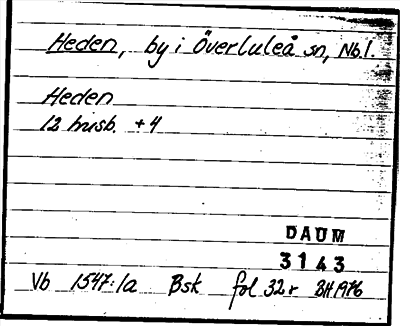 Heden, by i Överluleå sn, Nb.l.
Heden
12 husb. +4
DAUM
3143
Vb 1547:1a Bsk fol 32r BH 1976